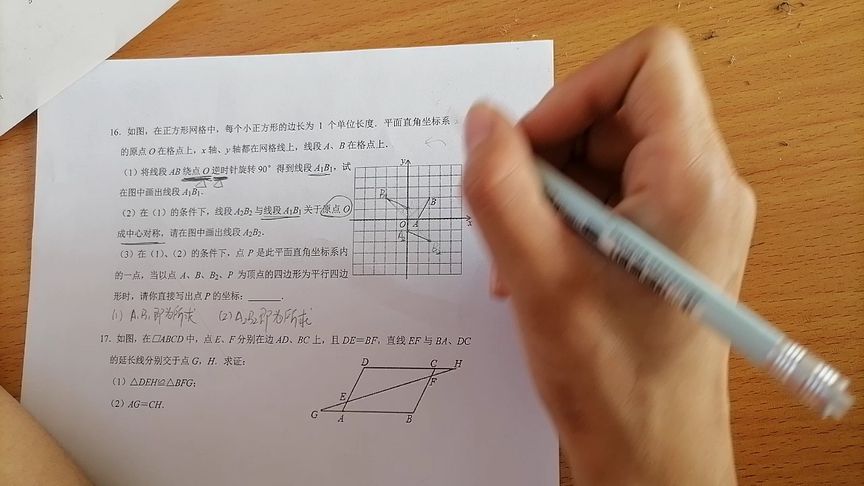 16. 如图，在正方形网格中，每个小正方形的边长为 1 个单位长度．平面直角坐标系
的原点 O 在格点上，x 轴、y 轴都在网格线上，线段 A、B 在格点上．
(1) 将线段 AB 绕点 O 逆时针旋转 90° 得到线段 A₁B₁，试
在图中画出线段 A₁B₁．
(2) 在（1）的条件下，线段 A₂B₂ 与线段 A₁B₁ 关于原点 O
成中心对称，请在图中画出线段 A₂B₂．
(3) 在（1）、（2）的条件下，点 P 是此平面直角坐标系内
的一点，当以点 A、B、B₂、P 为顶点的四边形为平行四边
形时，请你直接写出点 P 的坐标：______．
y
B
O
A
A₂
B₂
x
(1) A₁B₁即为所求 (2) A₂B₂即为所求
17. 如图，在□ABCD 中，点 E、F 分别在边 AD、BC 上，且 DE＝BF，直线 EF 与 BA、DC
的延长线分别交于点 G，H．求证：
(1) △DEH≌△BFG；
(2) AG＝CH．
D
C
H
F
E
G
A
B